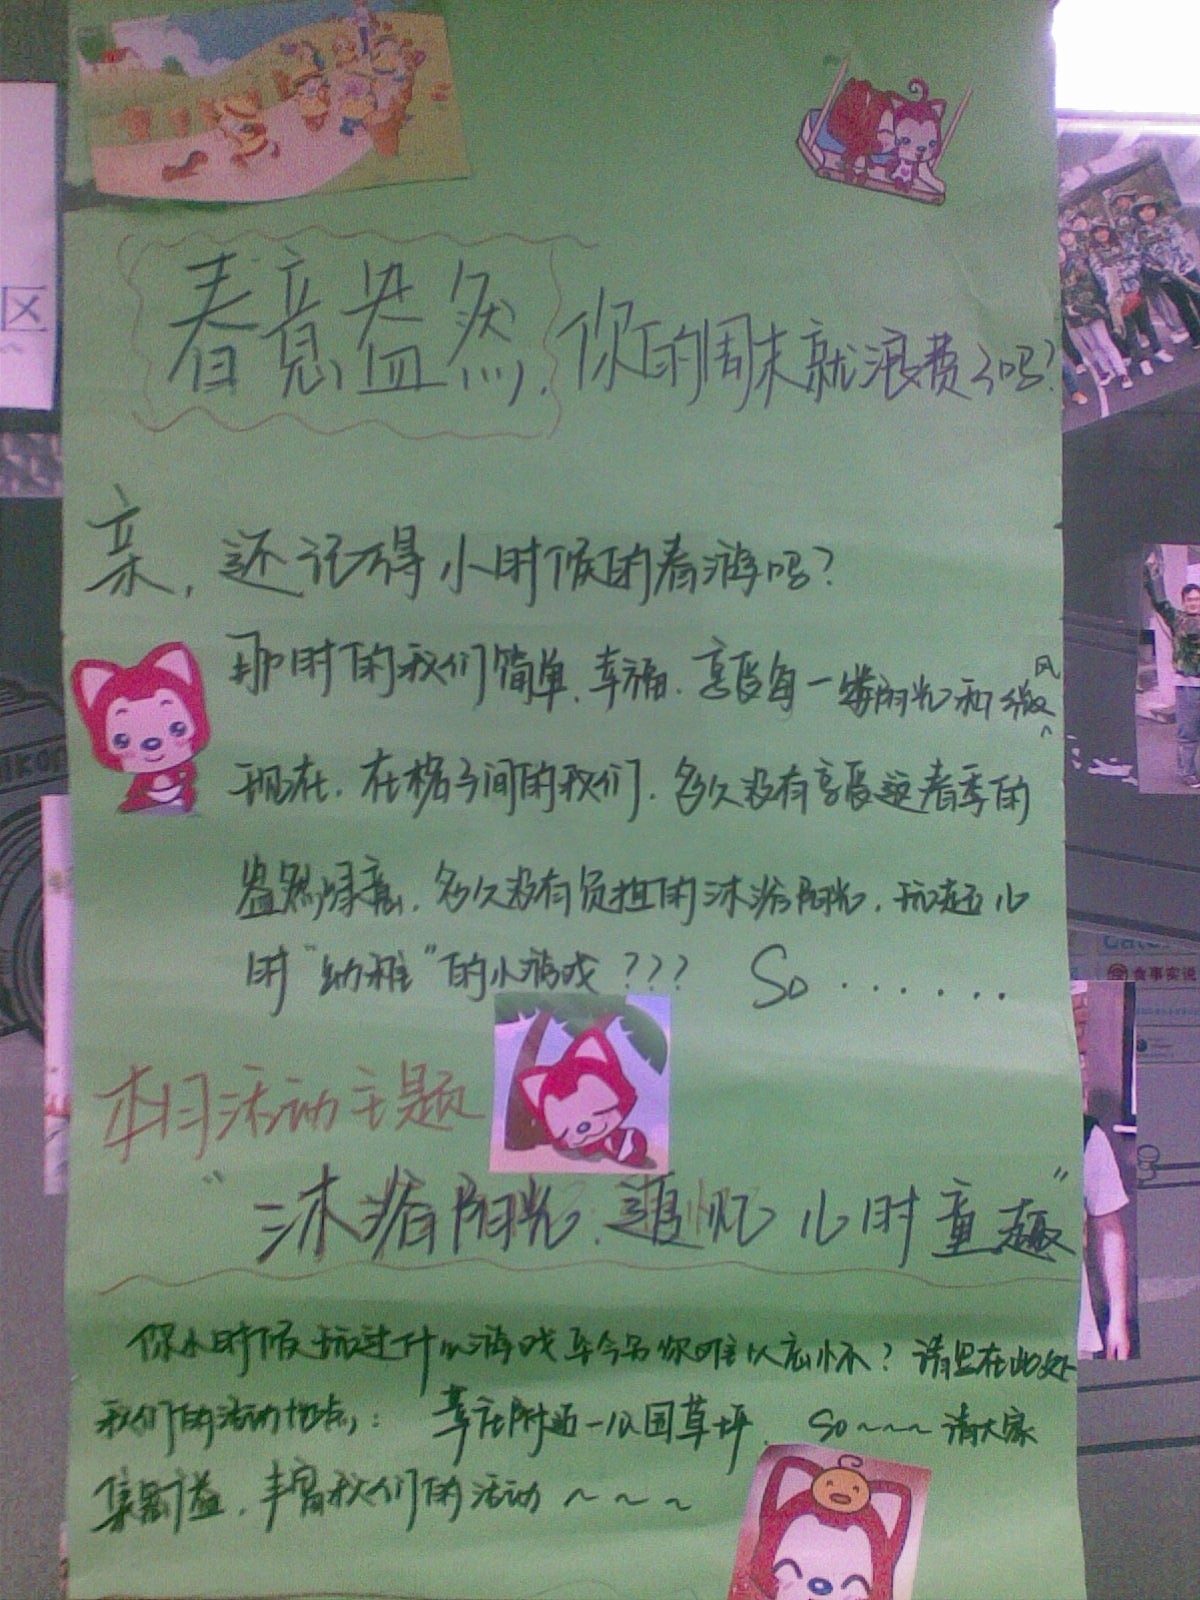 春意盎然,你的周末就浪费了吗?
亲,还记得小时候的春游吗?
那时的我们简单、幸福、享受每一缕阳光和微风
现在,在格子间的我们,多久没有享受这春季的
盎然绿意,多久没有负担的沐浴阳光,玩起儿
时“幼稚”的小游戏??? So······
本月活动主题
“沐浴阳光、追忆儿时童趣”
你小时候玩过什么游戏至今另你难以忘怀?请留在此处
我们的活动地点: 附近一公园草坪、So~~~请大家
集思广益,丰富我们的活动~~~
区
食事实说